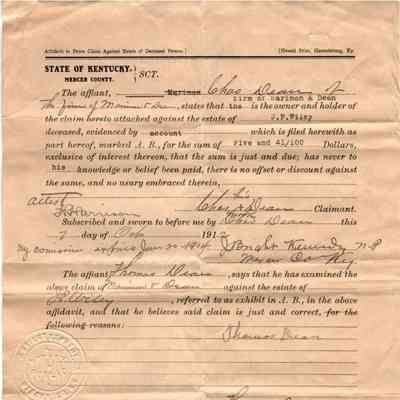 Affidavit to Prove Claim Against Estate of Deceased Person.) (Herald Print, Harrodsburg, Ky.
STATE OF KENTUCKY, } SCT.
MERCER COUNTY.
The affiant, Chas Dean of
firm of Marimon & Dean
the firm of Marimon & Dean, states that is the owner and holder of
the claim hereto attached against the estate of J.F.Wiley
deceased, evidenced by account which is filed herewith as
part hereof, marked A. B., for the sum of Five and 41/100 Dollars,
exclusive of interest thereon, that the sum is just and due; has never to
his knowledge or belief been paid, there is no offset or discount against
the same, and no usury embraced therein,
attest
Harrison Chas Dean Claimant.
Subscribed and sworn to before me by Chas Dean this
2 day of Oct 191
My commission expires Jan 20 1914 Kennedy N P
Mercer Co Ky
The affiant Thomas Dean, says that he has examined the
above claim of Marimon & Dean against the estate of
Wiley, referred to as exhibit in A. B., in the above
affidavit, and that he believes said claim is just and correct, for the
following reasons:
Thomas Dean